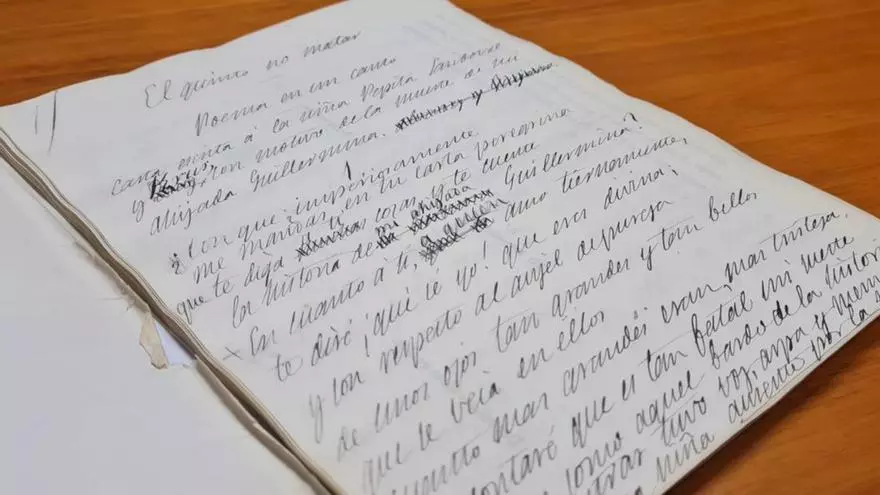 1)
El quinto no matar
Poema en un canto
Carta escrita á la niña Pepita Sandoval
y con motivo de la muerte de mi
ahijada Guillermina.
¿Con que imperiosamente
me mandas en tu carta peregrina
que te diga á ti cosas y te cuente
la historia de mi ahijada Guillermina?
+ En cuanto á ti, á quien amo tiernamente,
te diré ¡qué sé yo! que eres divina;
y con respecto al anjel de pureza
de unos ojos tan grandes y tan bellos
que se veia en ellos
cuanto mas grandes eran, mas tristeza.
contaré que es tan fatal mi suerte
como aquel bardo de la histori
tuvo voz, arpa y mem
niña ausente por la